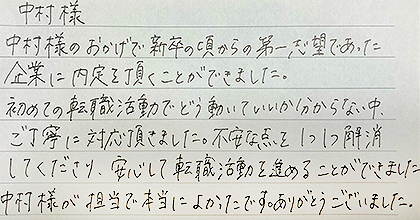 中村様
中村様のおかげで新卒の頃からの第一志望であった
企業に内定を頂くことができました。
初めての転職活動でどう動いていいか分からない中、
ご丁寧に対応頂きました。不安な点を1つ1つ解消
してくださり、安心して転職活動を進めることができました
中村様が担当で本当によかったです。ありがとうございました。